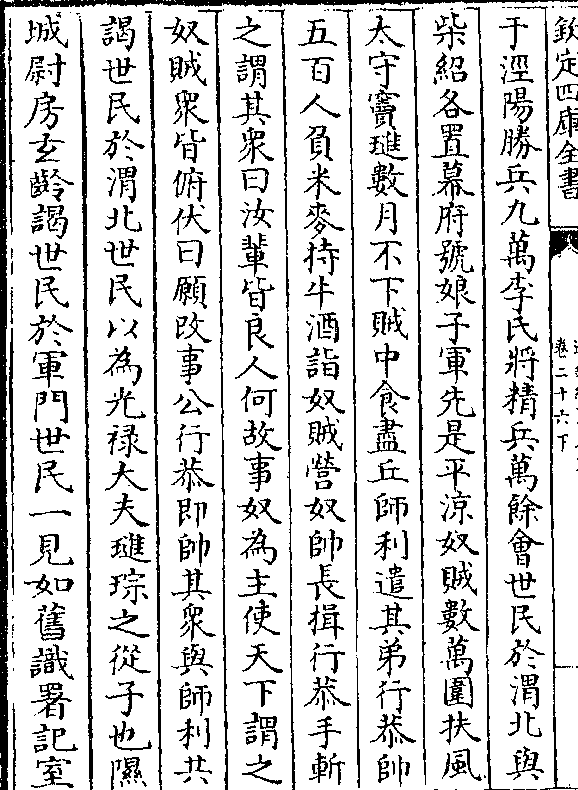 欽定四庫全書
卷二十六下
于涇陽勝兵九萬李氏將精兵萬餘會世民於渭北與
柴紹各置幕府號娘子軍先是平涼奴賊數萬圍扶風
太守竇璡數月不下賊中食盡丘師利遣其弟行恭帥
五百人負米麥持牛酒詣奴賊營奴帥長揖行恭手斬
之謂其衆曰汝輩皆良人何故事奴為主使天下謂之
奴賊衆皆俯伏曰願改事公行恭即帥其衆與師利共
謁世民於渭北世民以為光禄大夫璡琮之從子也隰
城尉房玄齡謁世民於軍門世民一見如舊識署記室